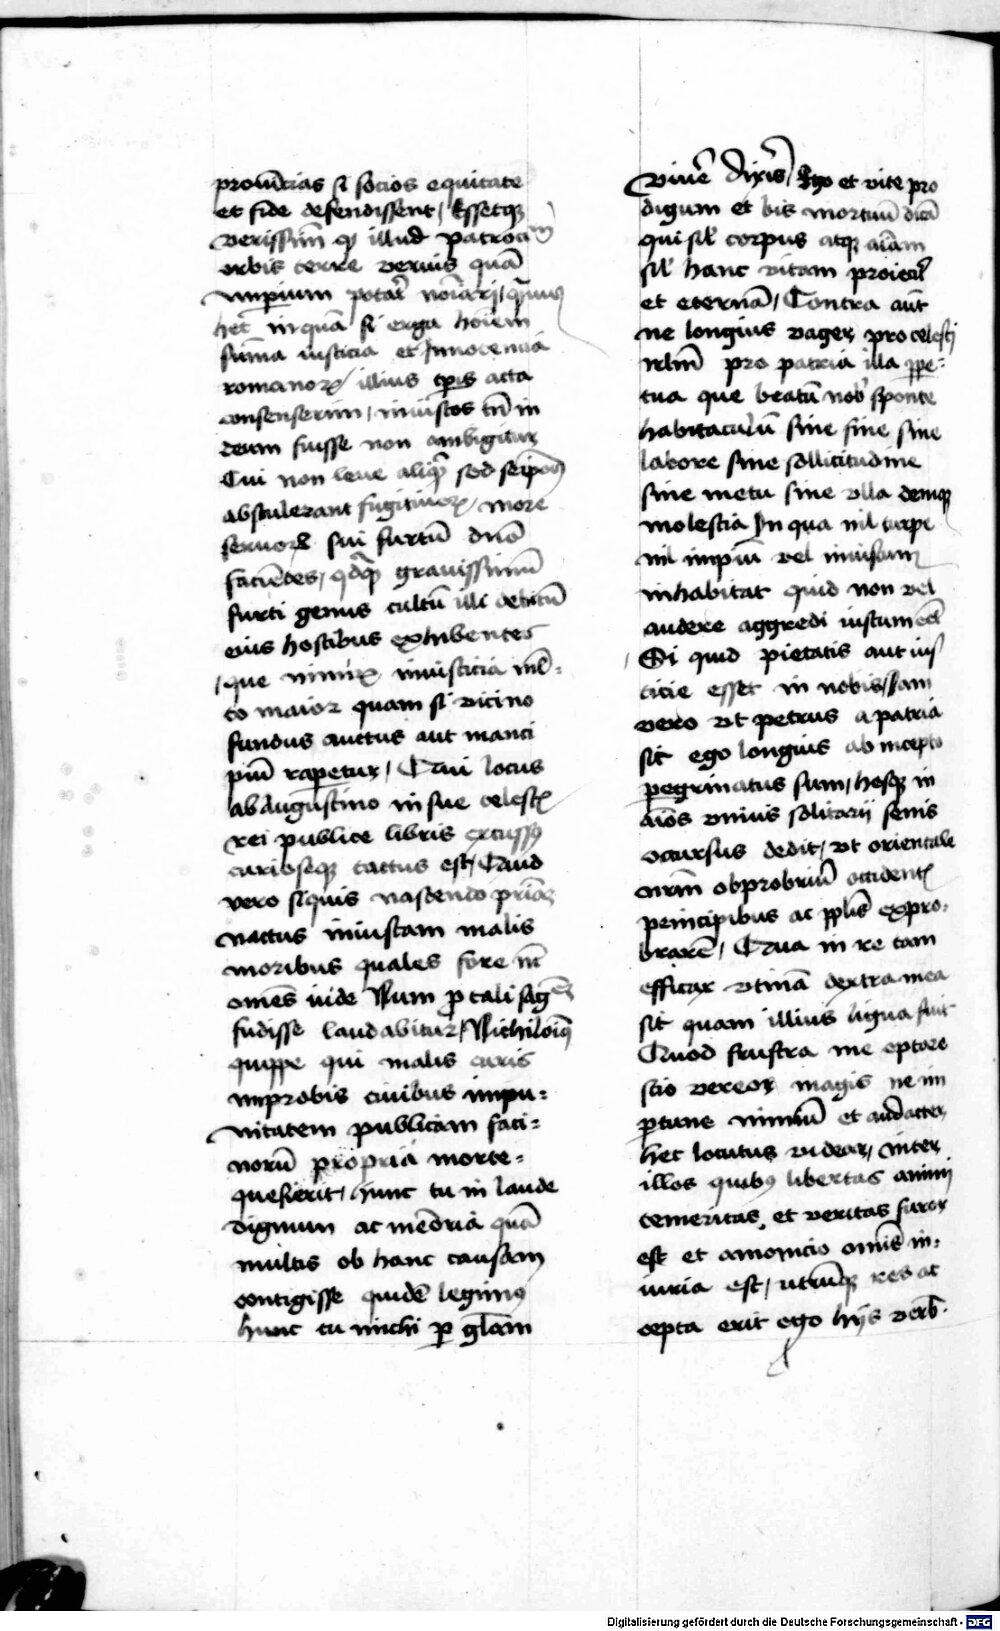 prouīcias si socios equitate
et fide defendissent / Essetqꝫ
verissim̄ qꝫ illud patrociniū
orbis terre verius quā
imperium potat᷑ noīari / quāuis
het᷑ inquā si erga hoīem
sūma iusticia et Innocencia
romanoꝝ / illius tp̄is acta
consenserim / iniustos tn̄ in
deum fuisse non ambigitur
Cui non leue aliqͥd sed seip̄os
abstulerant fugitiuoꝝ / more
seruoꝝ sui furtū dn̄o
faciētes / qdqꝫ grauissimū
furti genus cultū illi debitū
eius hostibus exhibentes
/ que nimiꝝ iniusticia ml̄-
to maior quam si vicino
fundus auctus aut manci
piū rapetur / Qui locus
ab augustino in sue celestꝭ
rei publice libris excussꝰ
curioseqꝫ tactus est / Quid
vero siquis nascendo priāꝫ
nactus iniustam malis
moribus quales fore nr̄
omēs uide Num ꝓ tali sāgꝫ
fudisse laudabitur / Nichiloīꝰ
quippe qui malis curis
improbis ciuibus impu-
nitatem publicam faci-
norū propria morte-
quesierit / hunc tu in laude
dignum ac mēoria quā
multis ob hanc causam
contigisse quidē legimꝰ
hunc tu michi ꝑ gl̄am
viuē dixis᷑ / Ego et vite pro
digum et bis mortuū dicā
qui sil᷑ corpus atqꝫ aīam
sil᷑ hanc vitam proiecit᷑
et eternā / Contra aūt
ne longius vager pro celesti
irlm̄ pro patria illa ꝑpe-
tua que beatū nob᷑ sponte
habitaculū sine fine sine
labore sine sollicitudine
sine metu sine vlla deniqꝫ
molestia In qua nil turpe
nil impiū vel iniustum
inhabitat quid non vel
audere aggredi iustum eēt
/ Si quid pietatis aut ius
ticie esset in nobis / Iam
vero vt petrus a patria
sic ego longius ab incepto
peregrinatus sum / hesqꝫ in
aīos vnius solitarij senis
occursus dedit / vt orientale
nrm̄ obprobriū occidentꝭ
principibus ac ppl̄is expro-
brarē / Qua in re tam
efficax vtinā dextra mea
sit quam illius ligua fuit
Quod frustra me optare
scio vereor magis ne im
ꝑtune nimiū et audacter
hec locutus videar / inter
illos quibꝰ libertas animi
temeritas et veritas furor
est et amonicio omīs in-
iuria est / utrūqꝫ res ac
cepta erit ego hijs verb᷑